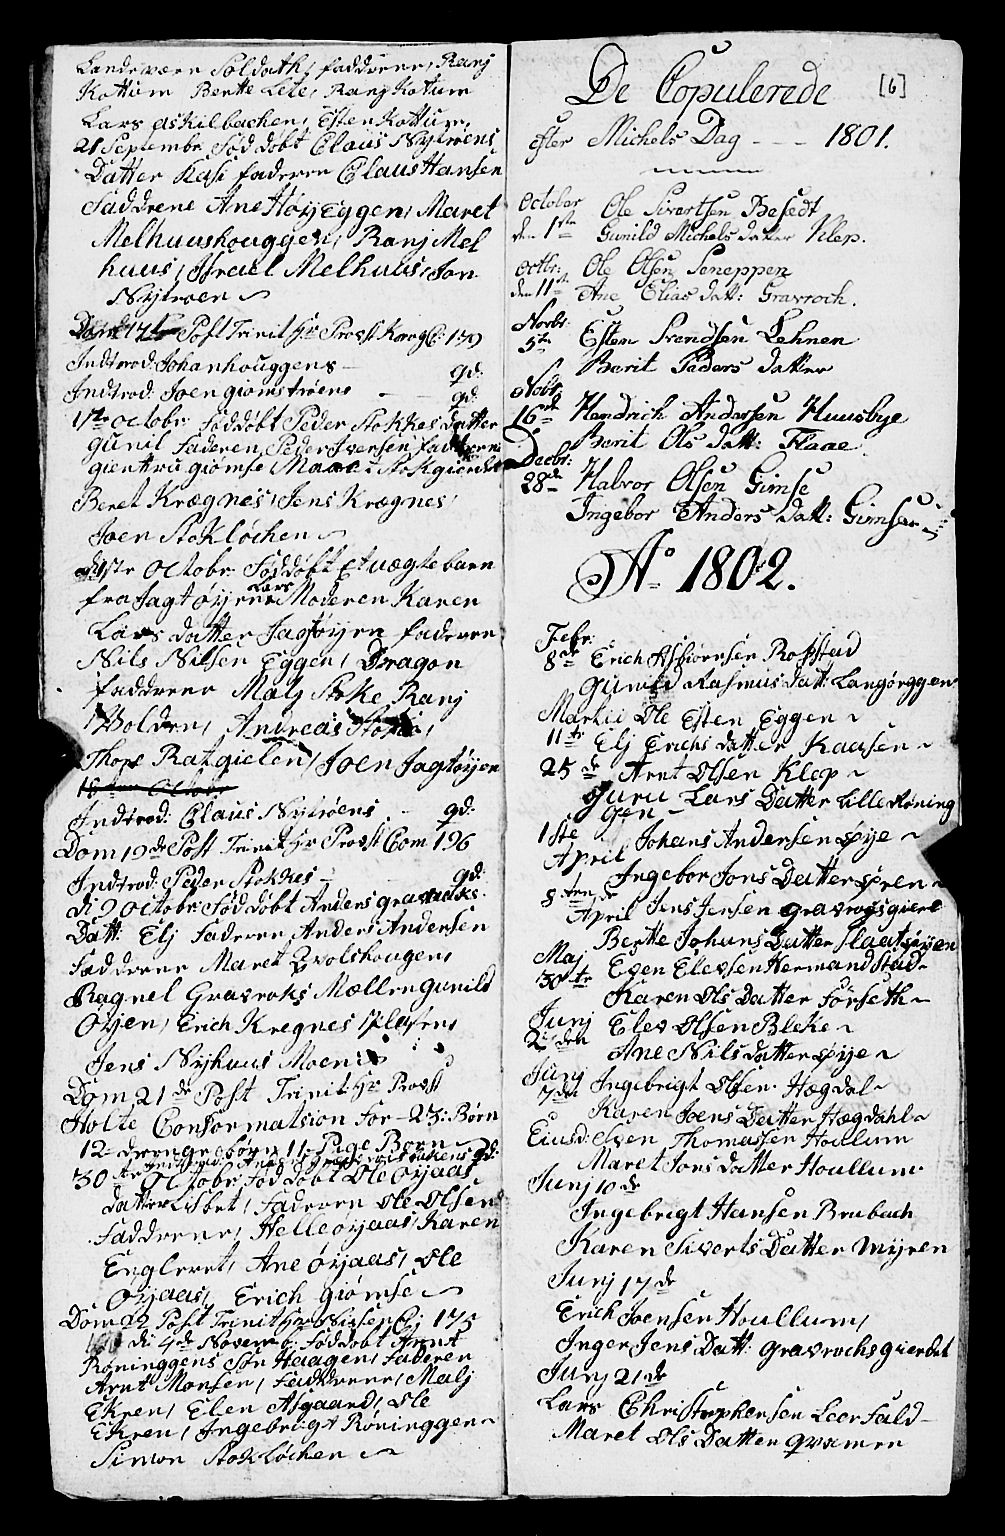 Landeværn Soldath, faddrene, Ranj
Kottum Berthe Lete, Ranj Kotum
Lars askilbachen, Esten Kottum,
21 Septembr Føddobt Claus Nytrøens
Datter Kasi faderen Claus Hansen
Faddrene Ane Høyeggen, Maret
Melhuushouggen, Ranj Mel
huus, Jsrael Melhuus, Jon
Nytroen
Post Trinit: Hr Provst
Jndtrod: Johanhouggens - qd:
Jndtrod: Joen giomstrøens - - qd:
1ste octobr føddøbt Peder Stokkes datter
gunil Faderen Peder Iversen, faddrene
gientru giomse Maret Stokgierdet
Beret Krægnes, Jens Krægnes,
Joen Stokløchen
octobr Føddøbt Et uægte barn
fra Jagtøyen Moderen Karen
Lars datter Jagtøyen faderen
Nils Nilsen Eggen, Dragon
faddrene Malj Stoke Ranj
Wolden, Andreas Stoke,
Thore Ratgielen, Joen Jagtøyen
Jndtrod: Claus Nytrøens - qd:
Dom 19de Post Trinit: Hr Provst Com 196
Jndtrod: Peder Stokkes - - qd:
di 9 octobr: Føddobt Anders gravraaks
Datt: Elj Faderen Anders Andersen
Faddrene Maret Qvolshougen,
Ragnel Gravroks Mællen gunild
Øyjen, Erich Kregnes
Jens Nyhuus Moen
Dom 21de Post Trinit: Hr Provst
Holte Consormatsion for - 23: Børn
12 drenge børn 11 Pige Børn
30 octobr: føddobt Ole Øyaas
datter Lisbet, Faderen Ole Olsen
Faddrene, Helle øyaas, Karen
Engleret, Ane øyaas, Ole
Øyaas, Erich giomse
Dom 22 Post Trinit: Hr Nissen Cj 175
di 4de Novemb: Føddobt Arnt
Røninggens Søn Haagen, Faderen
Arnt Monsen, Faddrene, Malj
Ekren, Elen Asgaard, Ole
Ekren, Ingebrigt Roninggen
Simon Stokløchen
De Copulerede [6]
efter Michels Dag - - - 1801.
October Ole Sivertsen Besedt
den 1ste Gunild Michels datter Klep.
Octbr: Ole Olsen Seneppen
den 11te Ane Elias datt: Gravroch.
Novbr Esten Svendsen Lehnen
5te Berit Peders datter
Novbr Hendrich Andersen Huusbye
16de Berit Ols datt: Flaae.
Decbr: Halvor Olsen Gimse
28de Ingebor Anders datt: Gimse
A° 1802.
Febr: Erich Asbiørnsen Rosstad
8de Gunild Rasmus datt: Langørggen
Martii Ole Esten Eggen
11te Elj Erichs datter Kaasen
25de Arnt Olsen Klep
Guru Lars Datter Lille Røning
gen
1ste Johans Andersen øye
April Ingebor Jons Datter øren
8 April Jens Jensen gravrogsgiere
Berthe Johans Datter Slaatøyen
Maj Even Elevsen Hermandstad
30te Karen Ols Datter Forseth
Junj Elev Olsen Bleke
2den Ane Nils datter øye
Junj Ingebrigt Olsen Hægdal
7de Karen Joens Datter Hægdahl
Eiusd: Sven Thomassen Houlum
Maret Jons datter Houllum
Junj 10de
Ingebrigt Hansen Brubach
Karen Siverts Datter Myren
Junj 17de
Erich Joensen Houllum,
Inger Jens Datt: gravrochsgierdet
Junj 21de
Lars Christophersen Leerfald
Maret Ols Datter qvamen